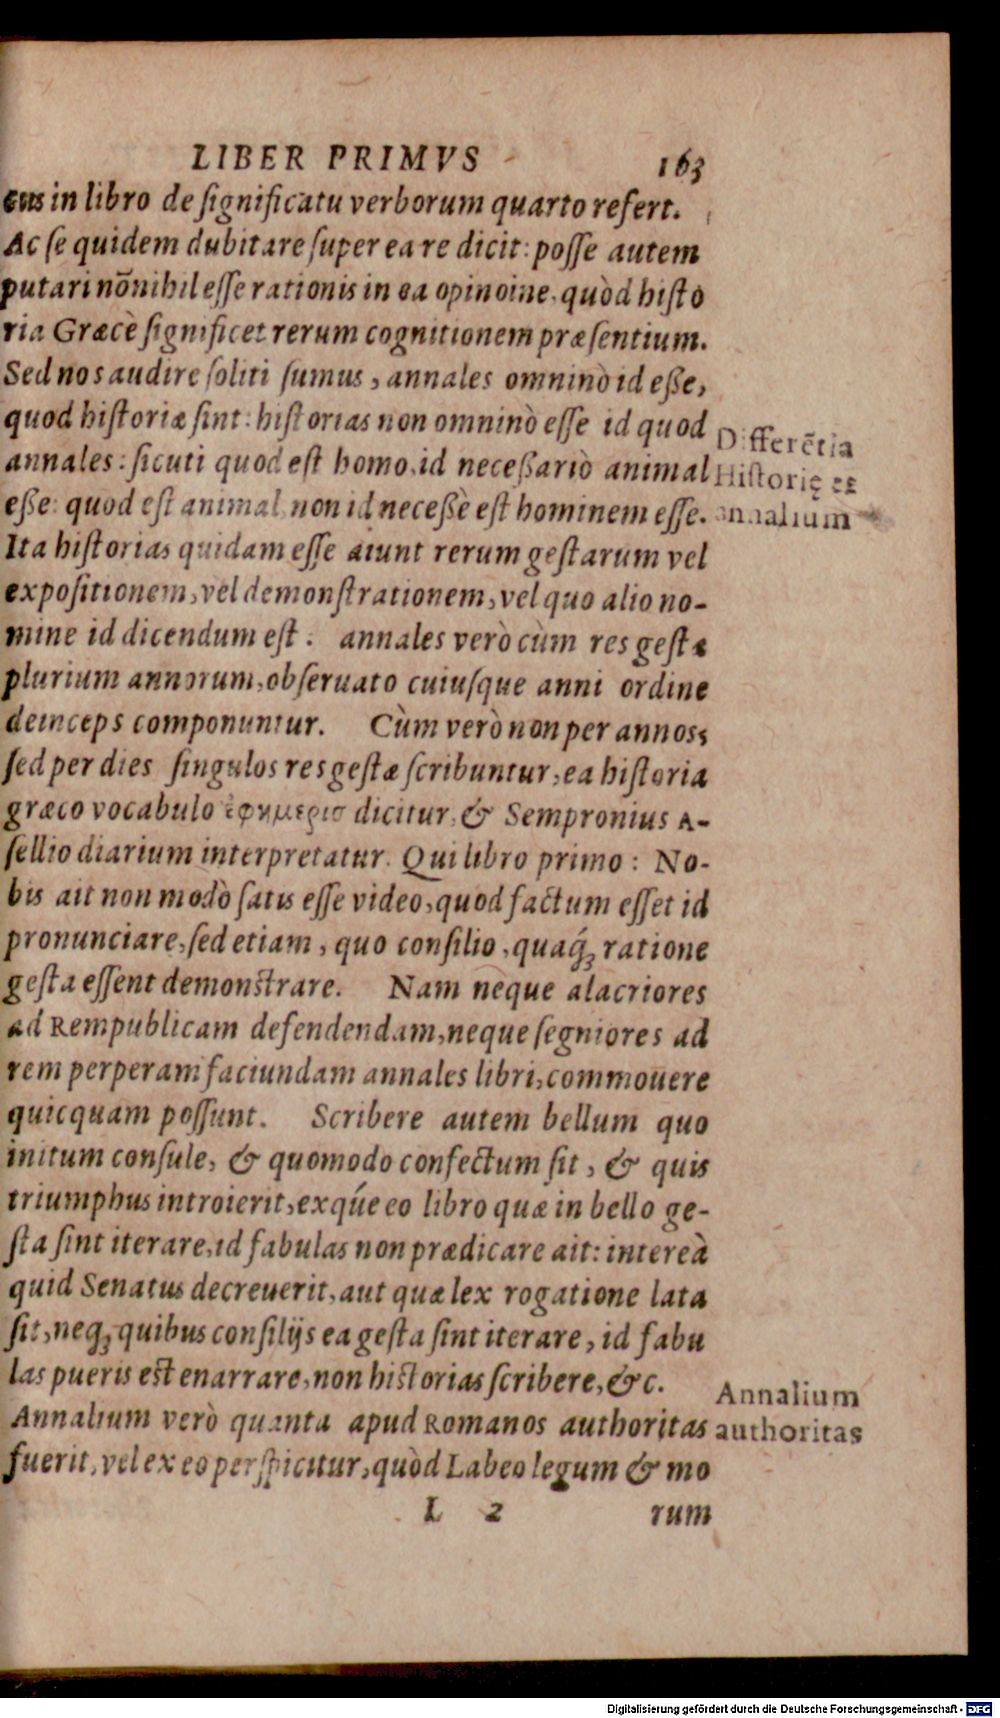 LIBER PRIMVS 163
cus in libro de ſignificatu verborum quarto refert.
Ac ſe quidem dubitare ſuper ea re dicit: poſſe autem
putari nōnihil eſſe rationis in ea opinoine, quòd hiſto
ria Græcè ſignificet rerum cognitionem præſentium.
Sed nos audire ſoliti ſumus, annales omninò id eße,
quod hiſtoriæ ſint: hiſtorias non omninò eſſe id quod
annales: ſicuti quod eſt homo, id neceßariò animal
eße: quod eſt animal, non id neceßè eſt hominem eſſe.
Differētia
Hiſtorię et
annalium
Ita hiſtorias quidam eſſe aiunt rerum geſtarum vel
expoſitionem, vel demonſtrationem, vel quo alio no-
mine id dicendum eſt: annales verò cùm res geſtæ
plurium annorum, obſeruato cuiuſque anni ordine
deinceps componuntur. Cùm verò non per annos,
ſed per dies ſingulos res geſtæ ſcribuntur, ea hiſtoria
græco vocabulo ἐφημερισ dicitur, & Sempronius A-
ſellio diarium interpretatur. Qui libro primo: No-
bis ait non modò ſatis eſſe video, quod factum eſſet id
pronunciare, ſed etiam, quo conſilio, quaq́ꝫ ratione
geſta eſſent demonſtrare. Nam neque alacriores
ad Rempublicam defendendam, neque ſegniores ad
rem perperam faciundam annales libri, commouere
quicquam poſſunt. Scribere autem bellum quo
initum conſule, & quomodo confectum ſit, & quis
triumphus introierit, exq́ue eo libro quæ in bello ge-
ſta ſint iterare, id fabulas non prædicare ait: intereà
quid Senatus decreuerit, aut quæ lex rogatione lata
ſit, neqꝫ quibus conſilijs ea geſta ſint iterare, id fabu
las pueris eſt enarrare, non hiſtorias ſcribere, &c.
Annalium verò quanta apud Romanos authoritas
fuerit, vel ex eo perſpicitur, quòd Labeo legum & mo
Annalium
authoritas
L 2 rum
Digitalisierung gefördert durch die Deutsche Forschungsgemeinschaft - DFG